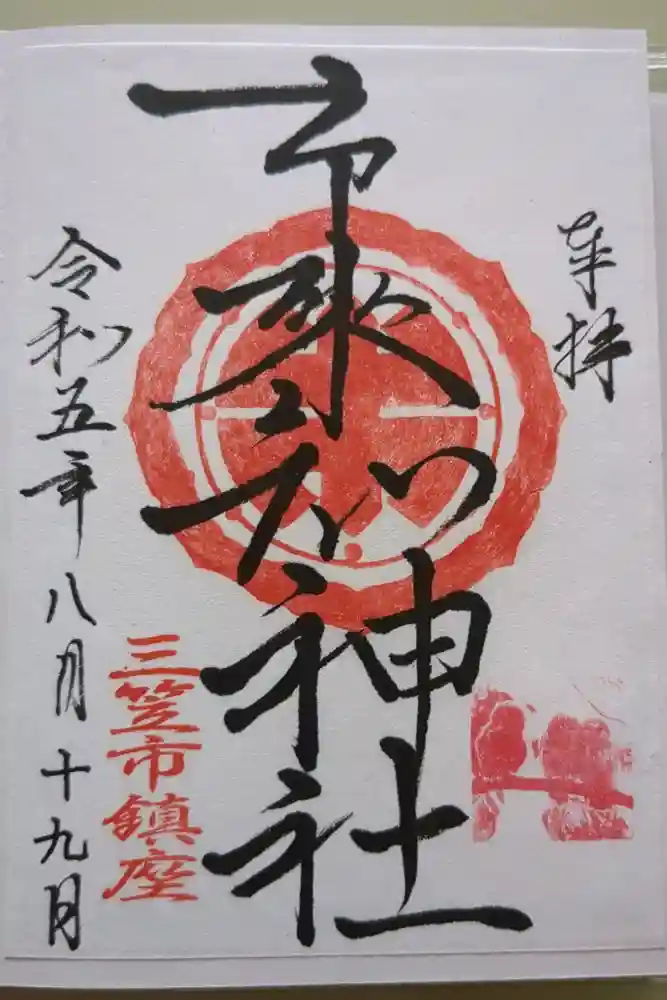 奉拝
市来知神社
三笠市鎮座
令和五年八月十九日